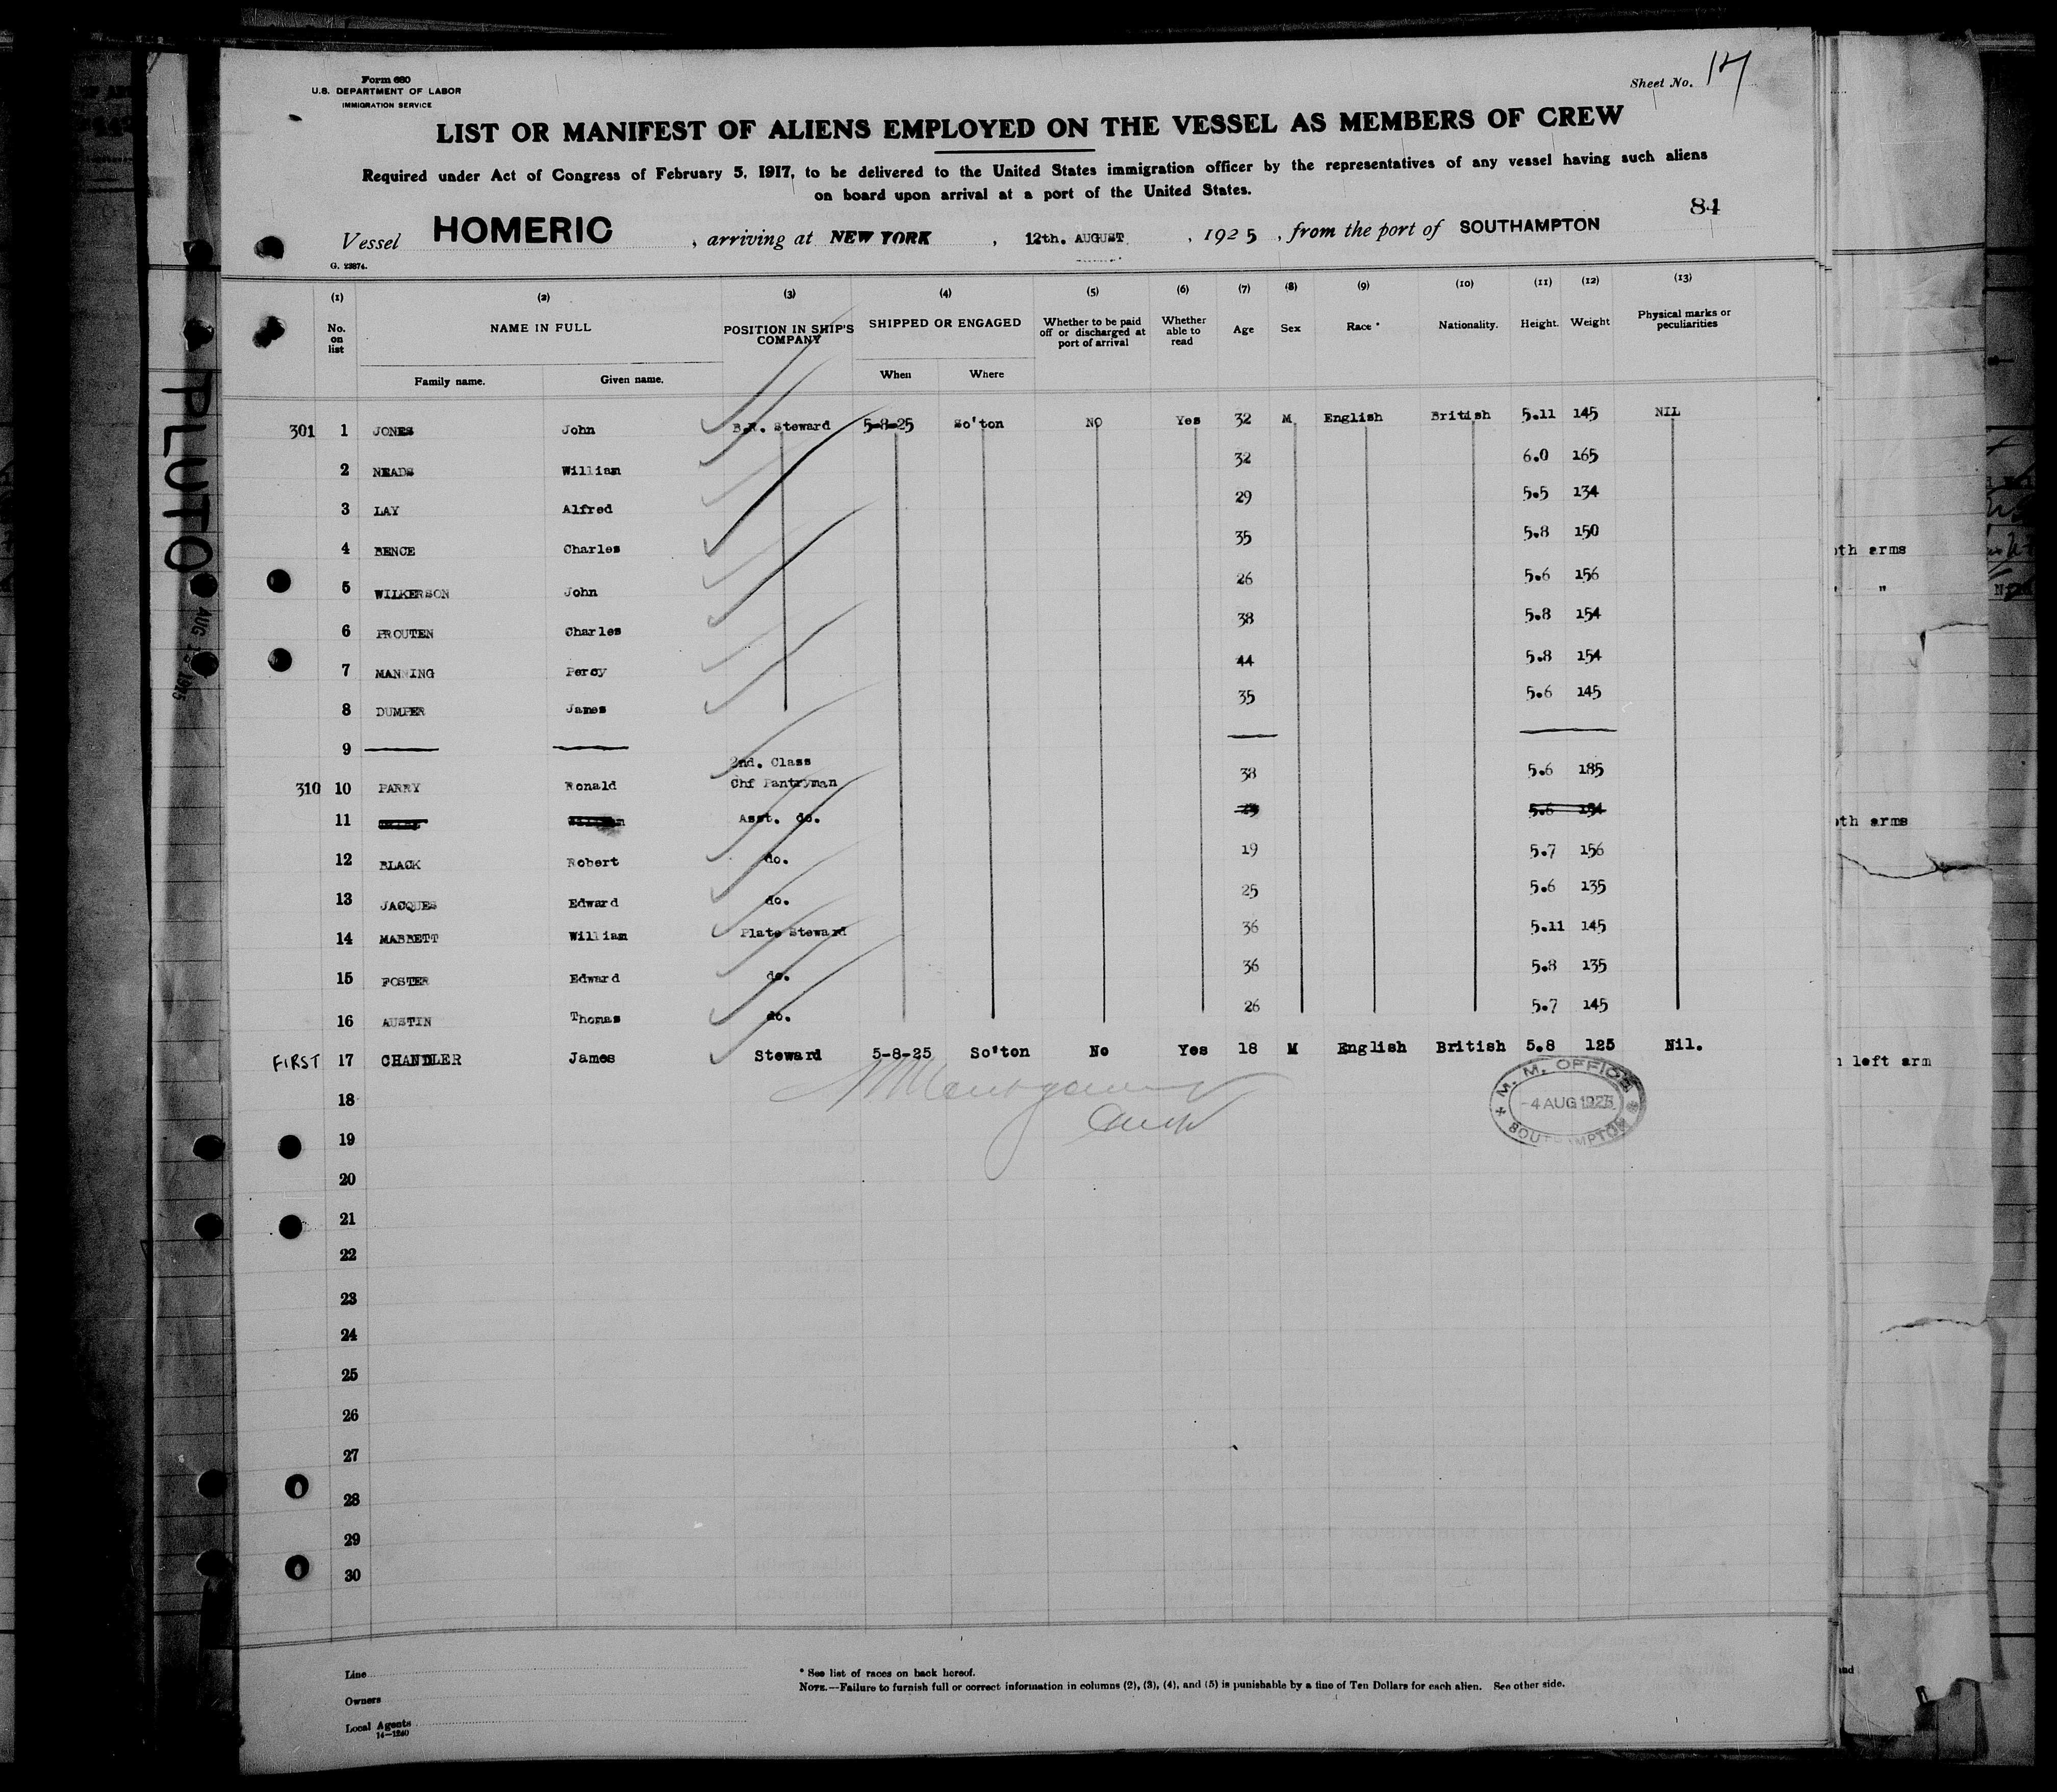 Form 680
U.S. DEPARTMENT OF LABOR
IMMIGRATION SERVICE
Sheet No. 17
LIST OR MANIFEST OF ALIENS EMPLOYED ON THE VESSEL AS MEMBERS OF CREW
Required under Act of Congress of February 5, 1917, to be delivered to the United States immigration officer by the representatives of any vessel having such aliens
on board upon arrival at a port of the United States.
84
Vessel HOMERIC , arriving at NEW YORK , 12th. AUGUST , 1925 , from the port of SOUTHAMPTON
G. 23874.
(1) (2) (3) (4) (5) (6) (7) (8) (9) (10) (11) (12) (13)
No. on list NAME IN FULL POSITION IN SHIP'S COMPANY SHIPPED OR ENGAGED Whether to be paid off or discharged at port of arrival Whether able to read Age Sex Race * Nationality. Height. Weight Physical marks or peculiarities
Family name. Given name. When Where
301 1 JONES John B.R. Steward 5-8-25 So'ton NO Yes 32 M English British 5.11 145 NIL
2 NEADS William 32 6.0 165
3 LAY Alfred 29 5.5 134
4 BENCE Charles 35 5.8 150
5 WILKERSON John 26 5.6 156
6 PROUTEN Charles 38 5.8 154
7 MANNING Percy 44 5.8 154
8 DUMPER James 35 5.6 145
9
2nd. Class
310 10 PARRY Ronald Chf Pantryman 38 5.6 185
11 Asst. do. 5.6
12 BLACK Robert do. 19 5.7 156
13 JACQUES Edward do. 25 5.6 135
14 MABBETT William Plate Steward 36 5.11 145
15 FOSTER Edward do. 36 5.8 135
16 AUSTIN Thomas do. 26 5.7 145
FIRST 17 CHANDLER James Steward 5-8-25 So'ton No Yes 18 M English British 5.8 125 Nil.
M. M. OFFICE
4 AUG 1925
SOUTHAMPTON
18
19
20
21
22
23
24
25
26
27
28
29
30
Line
Owners
Local Agents
14-1240
* See list of races on back hereof.
NOTE.—Failure to furnish full or correct information in columns (2), (3), (4), and (5) is punishable by a fine of Ten Dollars for each alien. See other side.
PLUTO
oth arms
"
oth arms
left arm